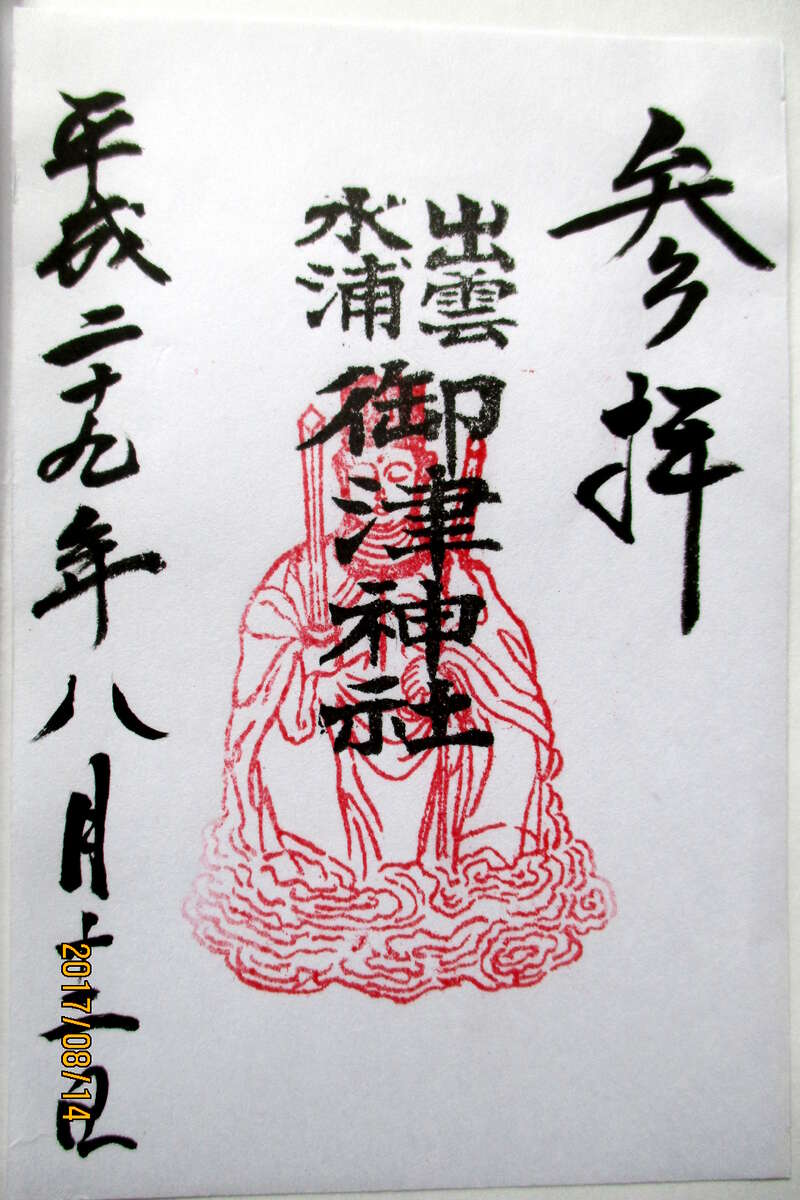 参拝
出雲
水浦
御津神社
平成二十九年八月十二日
2017/08/14